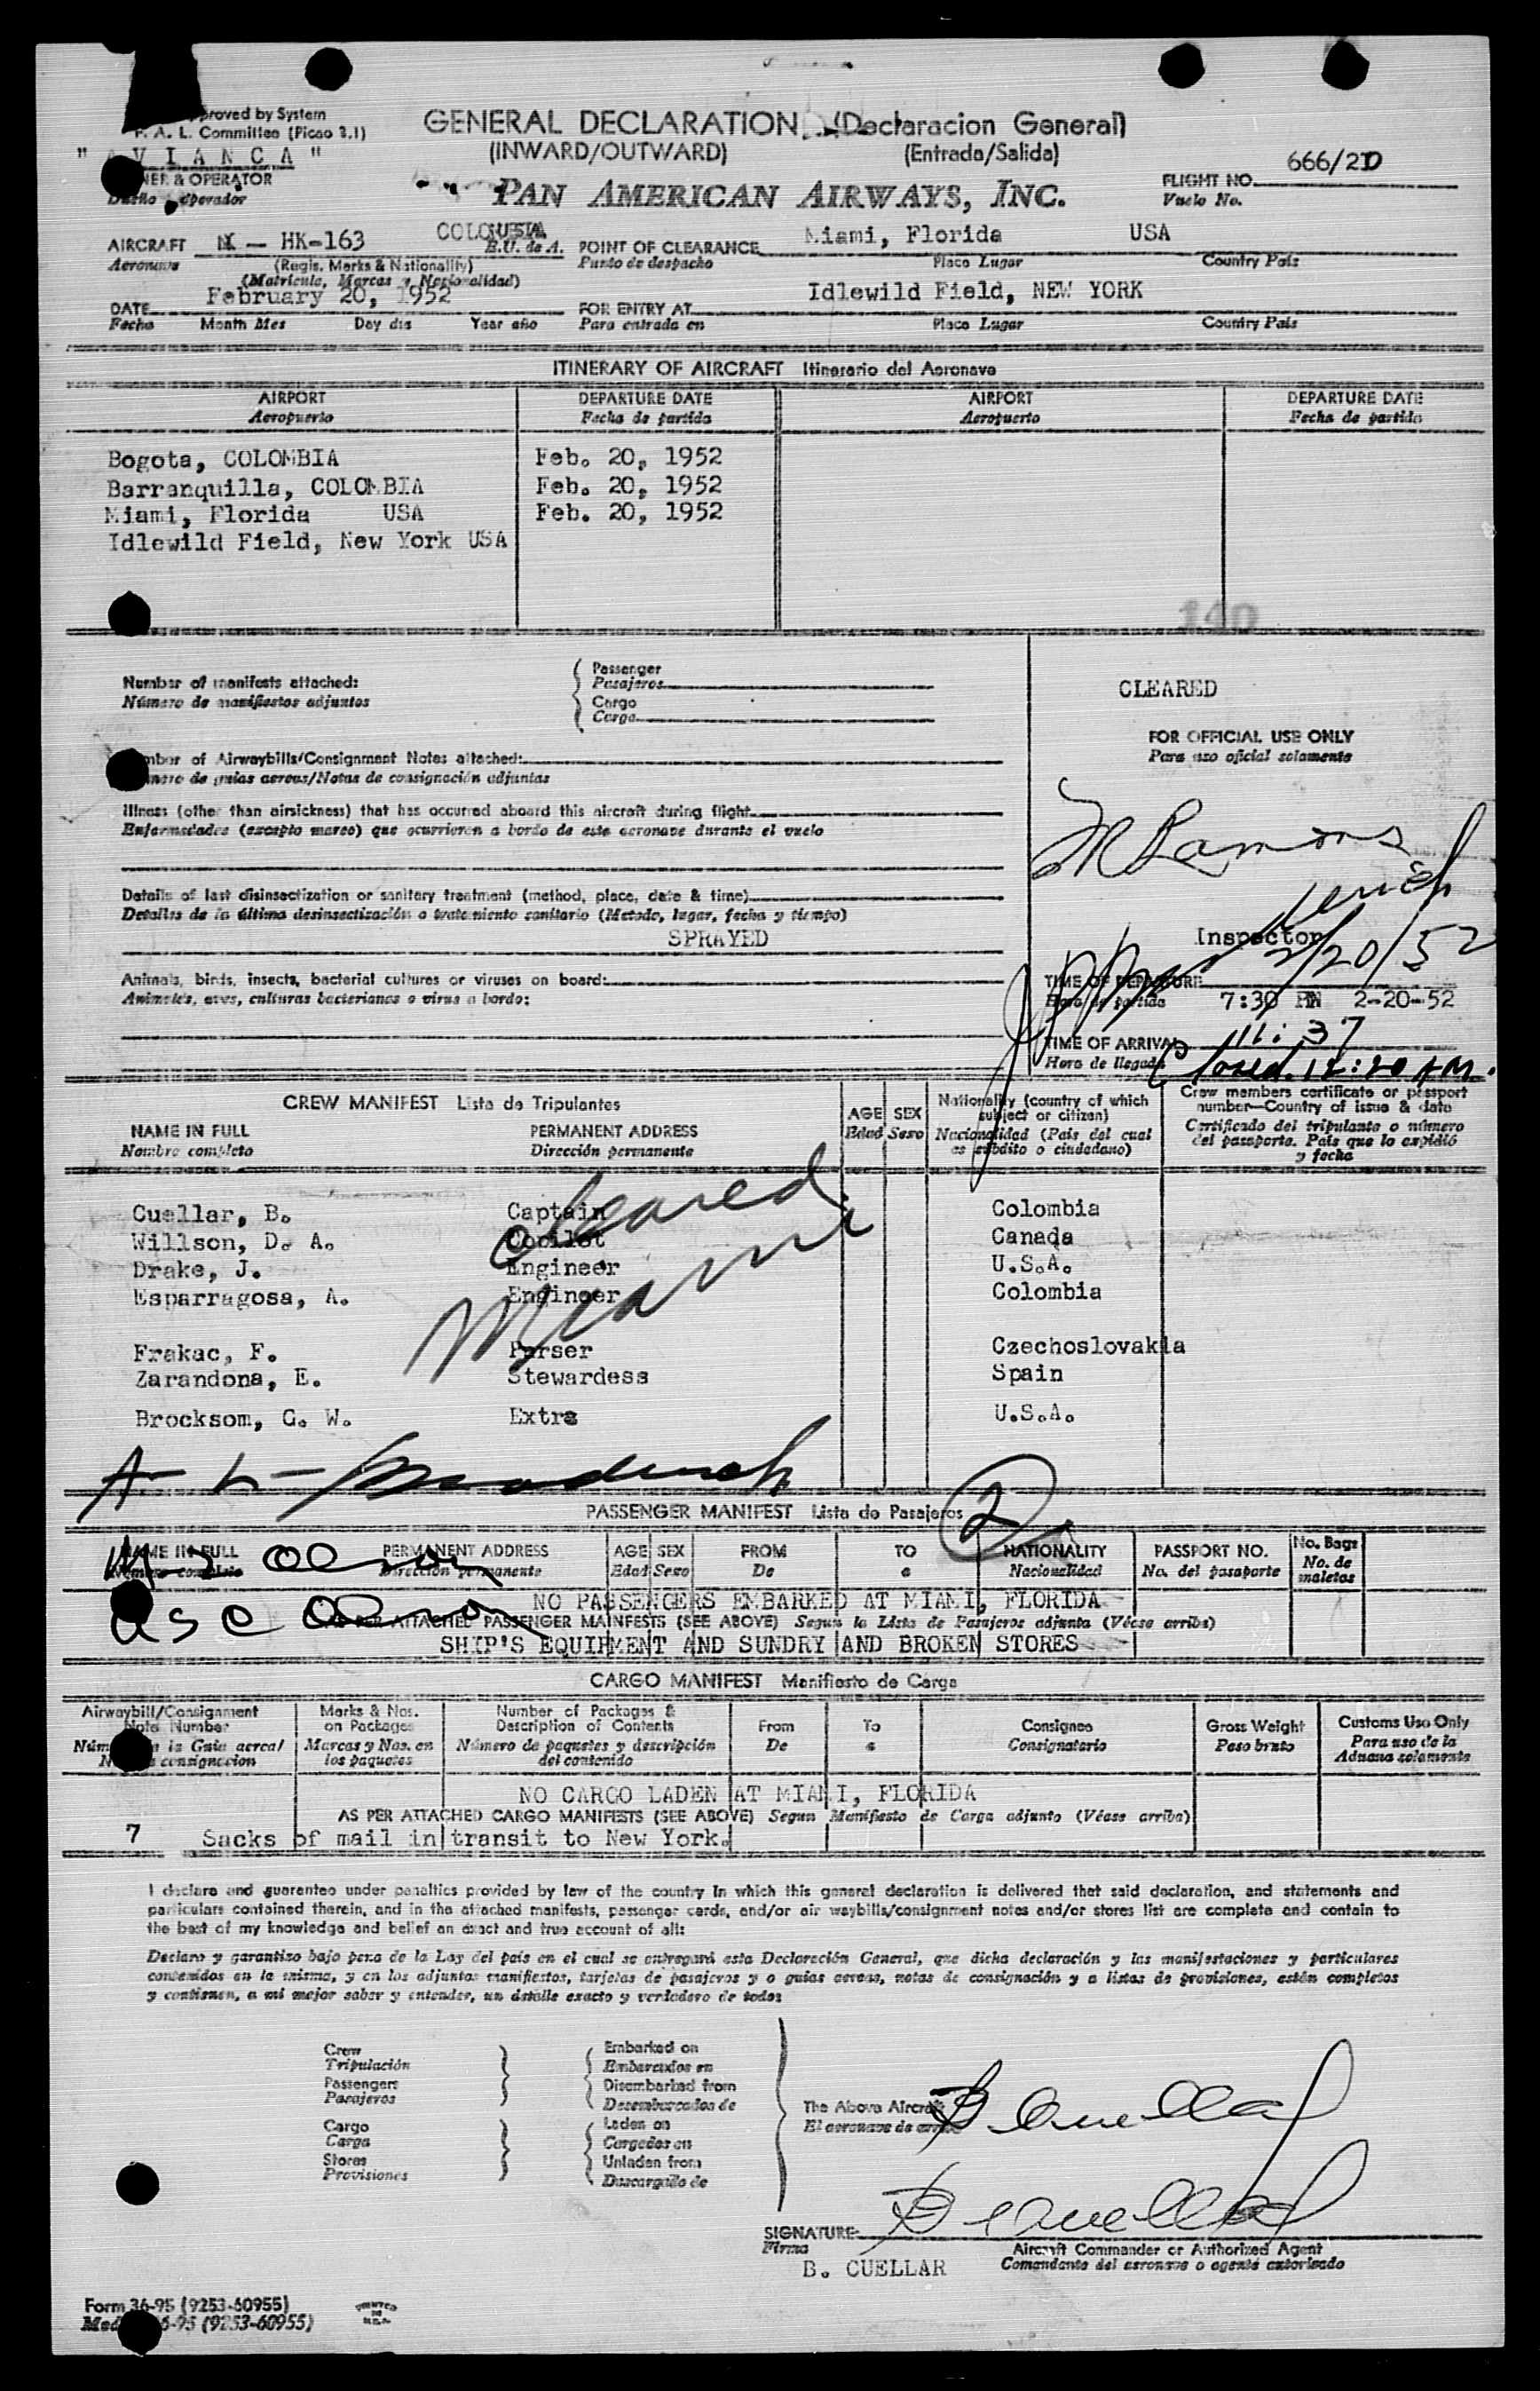 proved by System
F. A. L. Committee (Picao 2.1)
GENERAL DECLARATION (Declaracion General)
(INWARD/OUTWARD) (Entrada/Salida)
" AVIANCA "
OWNER & OPERATOR
Dueño operador
PAN AMERICAN AIRWAYS, INC.
666/2D
FLIGHT NO.
Vuelo No.
AIRCRAFT N - HK-163 E.U. de A.
Aeronave (Regis. Marks & Nationality)
(Matricula, Marcas y Nacionalidad)
POINT OF CLEARANCE Miami, Florida USA
Punto de despacho Place Lugar Country Pais
DATE February 20, 1952
Fecha Month Mes Day dia Year año
FOR ENTRY AT Idlewild Field, NEW YORK
Para entrada en Place Lugar Country Pais
ITINERARY OF AIRCRAFT Itinerario del Aeronave
AIRPORT DEPARTURE DATE AIRPORT DEPARTURE DATE
Aeropuerto Fecha de partida Aeropuerto Fecha de partida
Bogota, COLOMBIA Feb. 20, 1952
Barranquilla, COLOMBIA Feb. 20, 1952
Miami, Florida USA Feb. 20, 1952
Idlewild Field, New York USA
140
Number of manifests attached:
Número de manifiestos adjuntos
Passenger
Pasajeros
Cargo
Carga
CLEARED
FOR OFFICIAL USE ONLY
Para uso oficial solamente
Number of Airwaybills/Consignment Notes attached:
Número de guias aereas/Notas de consignación adjuntas
Illness (other than airsickness) that has occurred aboard this aircraft during flight
Enfermedades (excepto mareo) que ocurrieron a bordo de este aeronave durante el vuelo
M Ramons
Details of last disinsectization or sanitary treatment (method, place, date & time)
Detalles de la última desinsectización o tratamiento sanitario (Metodo, lugar, fecha y tiempo)
SPRAYED
Inspector
2/20/52
Animals, birds, insects, bacterial cultures or viruses on board:
Animales, aves, culturas bacterianas o virus a bordo:
TIME OF DEPARTURE
Hora de partida 7:30 PM 2-20-52
TIME OF ARRIVAL 11:37
Hora de llegada Closed. 12:20 AM.
CREW MANIFEST Lista de Tripulantes
NAME IN FULL PERMANENT ADDRESS AGE SEX
Nombre completo Dirección permanente Edad Sexo
Nationality (country of which subject or citizen)
Nacionalidad (Pais del cual es subdito o ciudadano)
Crew members certificate or passport number—Country of issue & date
Certificado del tripulante o número del pasaporte. Pais que lo expidió y fecha
Cuellar, B. Captain Colombia
Willson, D. A. Copilot Canada
Drake, J. Engineer U.S.A.
Esparragosa, A. Engineer Colombia
Frakac, F. Purser Czechoslovakia
Zarandona, E. Stewardess Spain
Brocksom, G. W. Extra U.S.A.
Cleared
Miami
2
PASSENGER MANIFEST Lista de Pasajeros
NAME IN FULL PERMANENT ADDRESS AGE SEX FROM TO NATIONALITY PASSPORT NO. No. Bags
Nombre completo Dirección permanente Edad Sexo De a Nacionalidad No. del pasaporte No. de maletas
NO PASSENGERS EMBARKED AT MIAMI, FLORIDA
AS PER ATTACHED PASSENGER MAINFESTS (SEE ABOVE) Segun la Lista de Pasajeros adjunta (Véase arriba)
SHIP'S EQUIPMENT AND SUNDRY AND BROKEN STORES
CARGO MANIFEST Manifiesto de Carga
Airwaybill/Consignment Note Number
Marks & Nos. on Packages
Number of Packages & Description of Contents
From To Consignee Gross Weight Customs Use Only
Marcas y Nos. en los paquetes
Número de paquetes y descripción del contenido
De a Consignatario Peso bruto Para uso de la Aduana solamente
NO CARGO LADEN AT MIAMI, FLORIDA
AS PER ATTACHED CARGO MANIFESTS (SEE ABOVE) Segun Manifiesto de Carga adjunto (Véase arriba)
7 Sacks of mail in transit to New York.
I declare and guarantee under penalties provided by law of the country in which this general declaration is delivered that said declaration, and statements and
particulars contained therein, and in the attached manifests, passenger cards, and/or air waybills/consignment notes and/or stores list are complete and contain to
the best of my knowledge and belief an exact and true account of all:
Declaro y garantizo bajo pena de la Ley del pais en el cual se entregará esta Declaración General, que dicha declaración y las manifestaciones y particulares
contenidos en la misma, y en los adjuntos manifiestos, tarjetas de pasajeros y o guias aereas, notas de consignación y a listas de provisiones, están completos
y contienen, a mi mejor saber y entender, un detalle exacto y verdadero de todos
Crew
Tripulación
Passengers
Pasajeros
Cargo
Carga
Stores
Provisiones
Embarked on
Embarcados en
Disembarked from
Desembarcados de
Laden on
Cargados en
Unladen from
Descargado de
The Above Aircraft
El aeronave de arriba
B Cuellar
B Cuellar
SIGNATURE
Firma
Aircraft Commander or Authorized Agent
Comandante del aeronave o agente autorizado
B. CUELLAR
Form 36-95 (9253-60955)
36-95 (9253-60955)
PRINTED IN U.S.A.